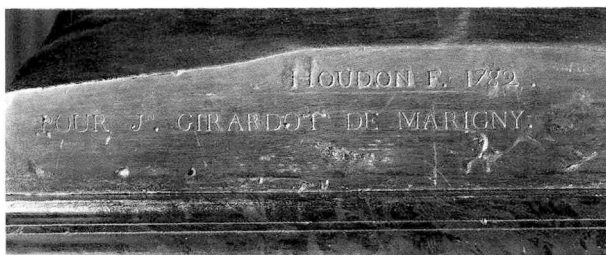 HOUDON F. 1782.
POUR Jn. GIRARDOT DE MARIGNY.